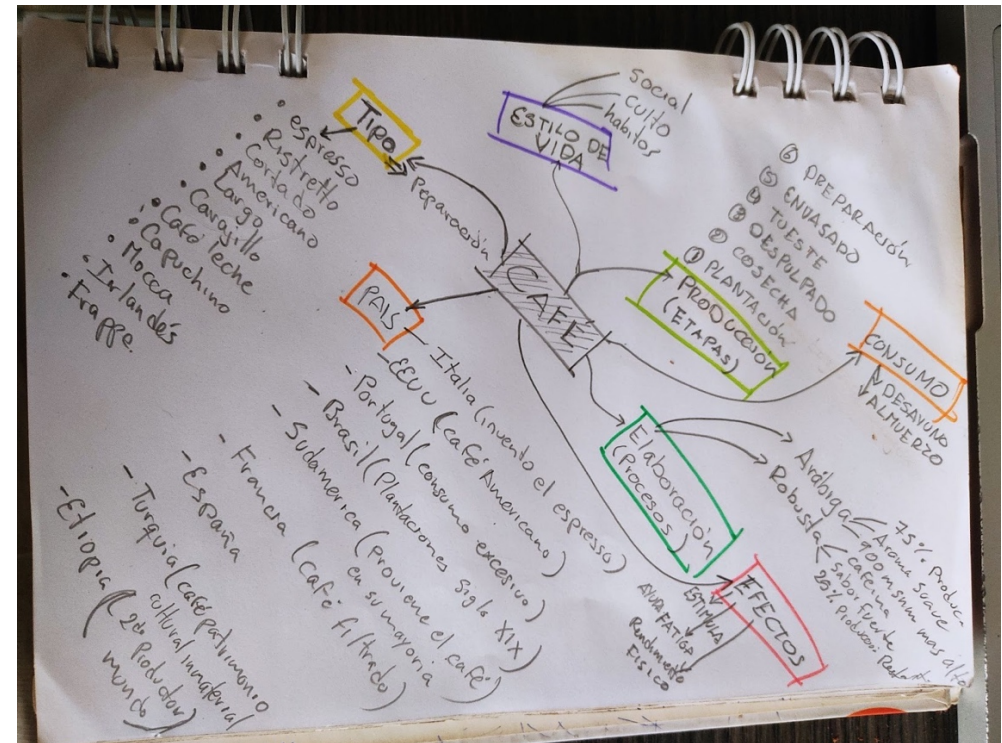 CAFE
TIPO
Preparación
• espresso
• Ristretto
• Cortado
• Americano
• Largo
• Carajillo
• Café leche
• Capuchino
• Mocca
• Irlandés
• Frappe.
ESTILO DE
VIDA
social
culto
habitos
PRODUCCIÓN
(ETAPAS)
① PLANTACIÓN
② COSECHA
③ DESPULPADO
④ TUESTE
⑤ ENVASADO
⑥ PREPARACIÓN
CONSUMO
DESAYUNO
ALMUERZO
Elaboración
(Procesos)
Arábiga
75% Produce
Aroma suave
900 m snm mas alto
Robusta
cafeina
sabor fuerte
25% Producen
EFECTOS
ESTIMULA
AYUDA FATIGA
Rendimiento
Fisico
PAIS
- Italia (invento el espresso)
- EEUU (café Americano)
- Portugal (consumo excesivo)
- Brasil (Plantaciones siglo XIX)
- Sudamerica (Proviene el café
en su mayoria)
- Francia (Café filtrado)
- España
- Turquia (café patrimonio
cultural inmaterial)
- Etiopia (2do Productor
mundo)